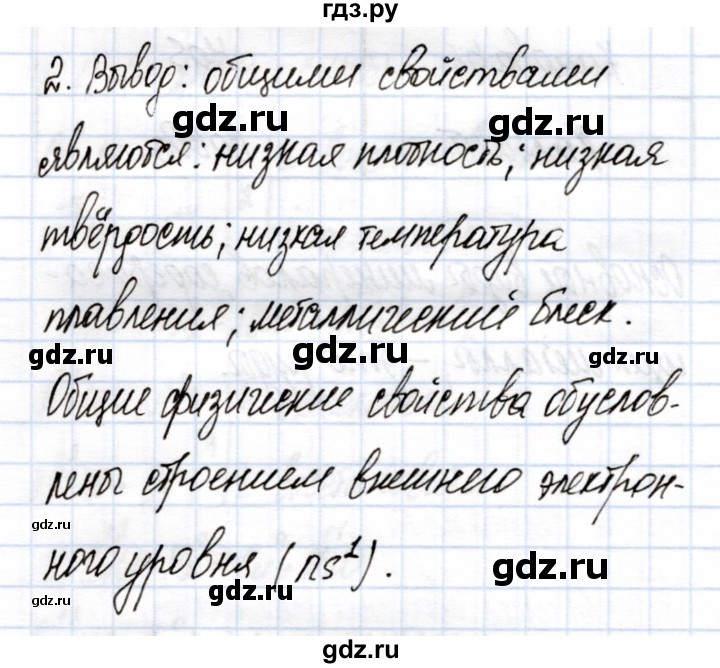 гдз.ру
2. Вывод: общими свойствами
gdz.ru
gdz.ru
являются: низкая плотность; низкая
твёрдость; низкая температура
плавления; металлический блеск.
gdz.ru
gdz.ru
gdz.ru
Общие физические свойства обуслов-
лены строением внешнего электрон-
gdz.ru
gdz.ru
ного уровня (ns¹).
gdz.ru
gdz.ru
gdz.ru
gdz.ru